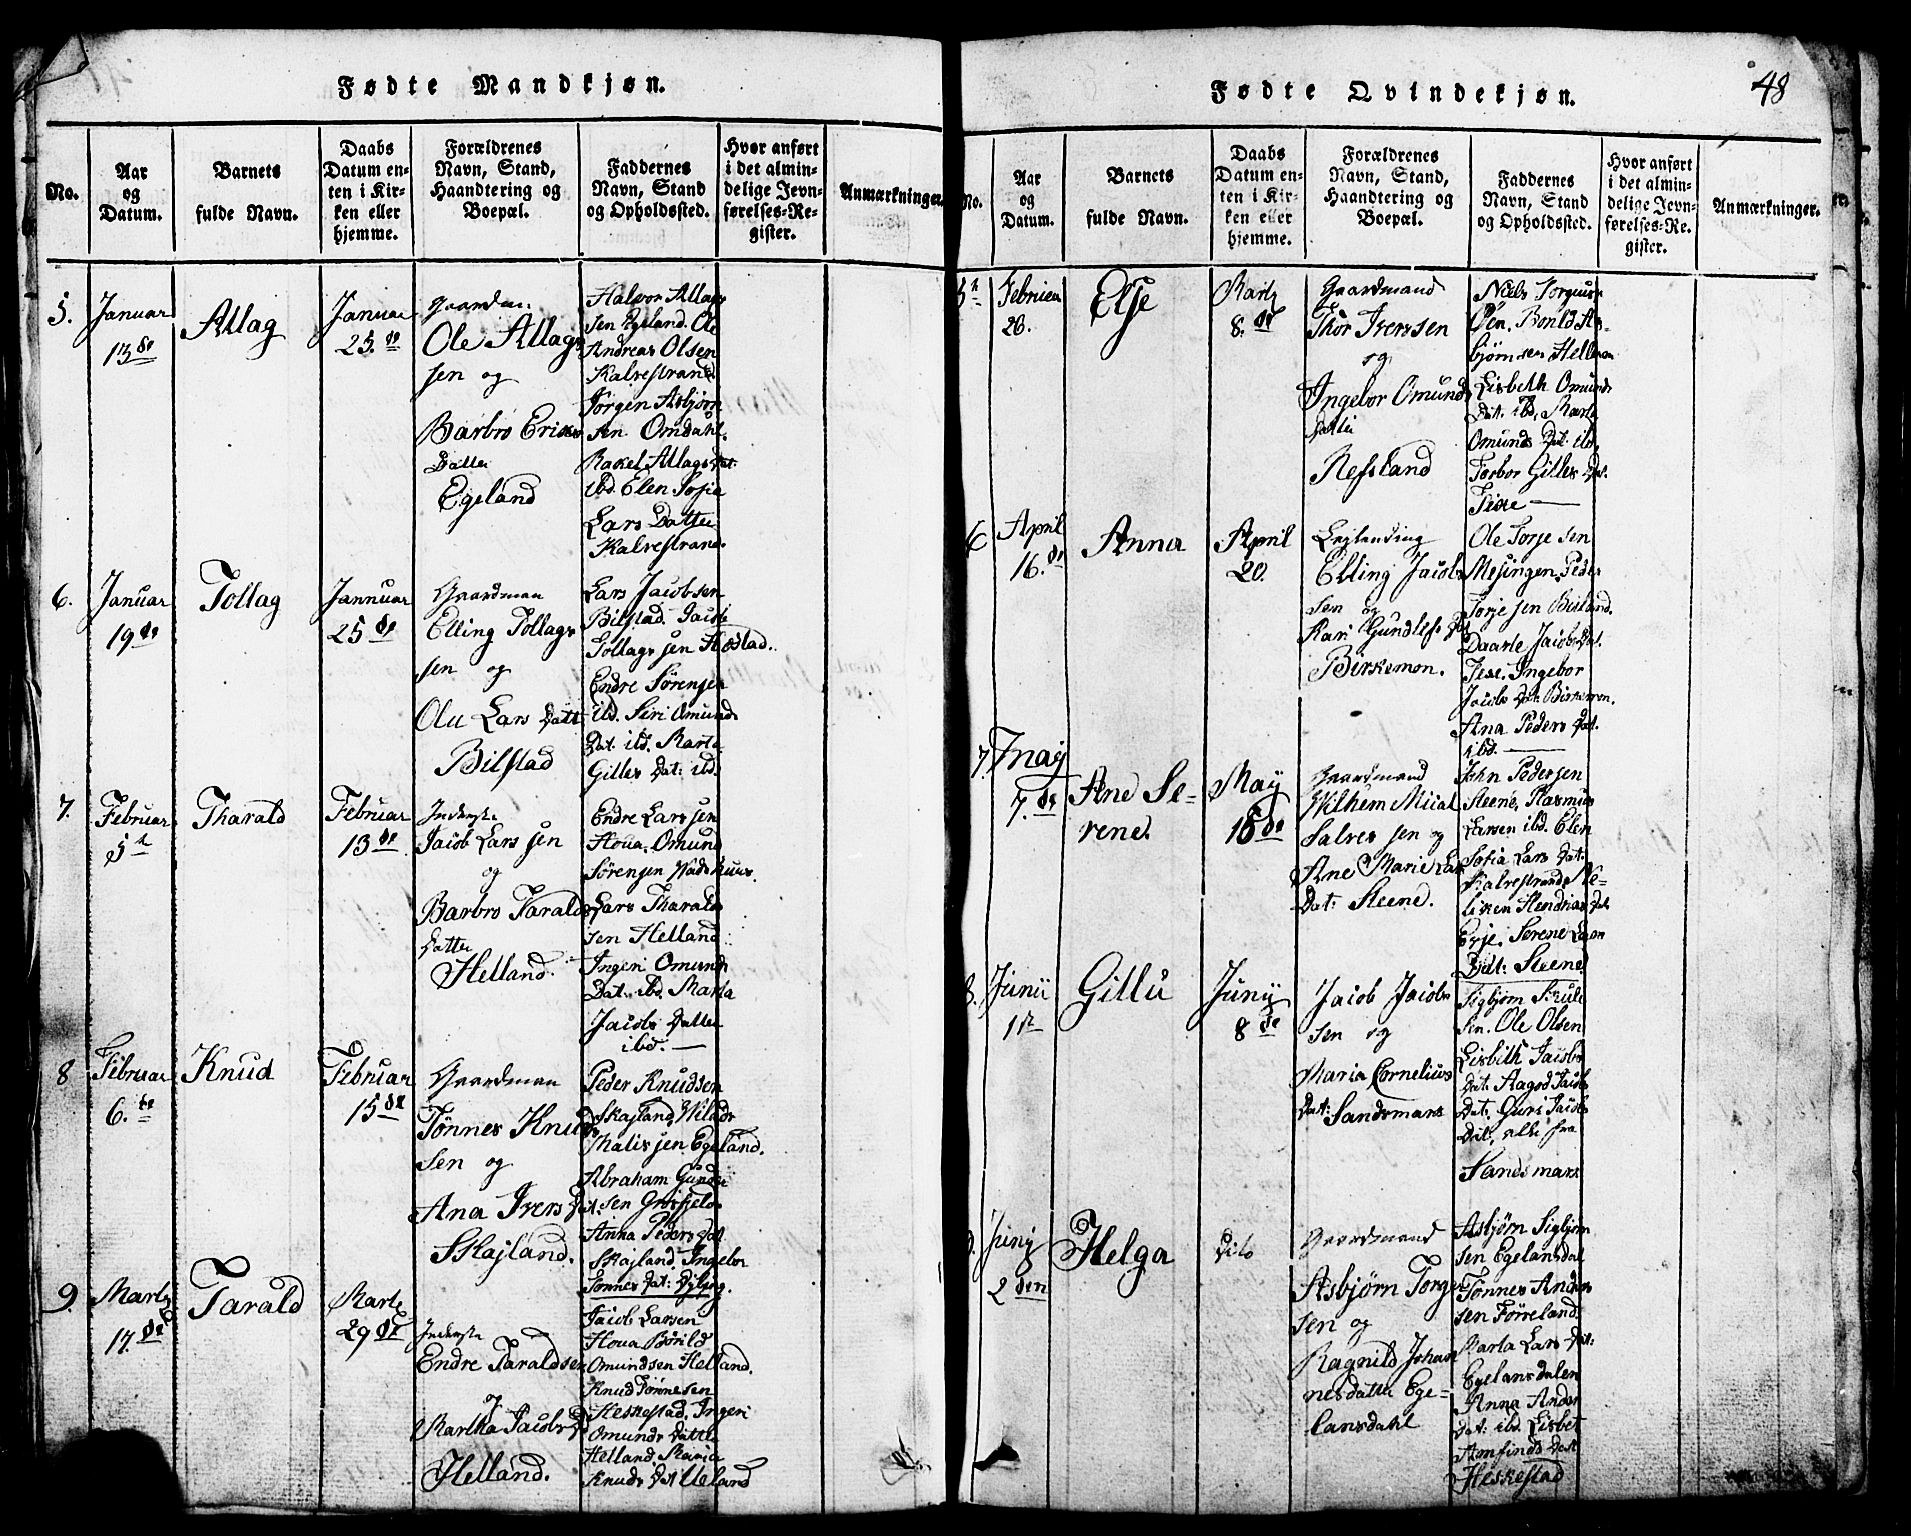 Fødte Mandkjøn.
No.
Aar
og
Datum.
Barnets
fulde Navn.
Daabs
Datum en-
ten i Kir-
ken eller
hjemme.
Forældrenes
Navn, Stand,
Haandtering og
Boepæl.
Faddernes
Navn, Stand
og Opholdssted.
Hvor anført
i det almin-
delige Jevn-
førelses-Re-
gister.
Anmærkninger.
5.
Januar
13de
Allag
Januar
25. de
Gaardman
Ole Allags
sen og
Barbro Erics
Datter
Egeland
Halvor Allags
sen Egeland. Ole
Andreas Olsen
Kalvestrand
Jörgen Asbjörn
sen Omdahl.
Rakel Allags Dat:
ibd. Elen Sofia
Lars Datter
Kalvestrand.
6.
Januar
19de
Tollag
Jannuar
25 de
Gaardman
Elling Tollags
sen og
Olu Lars Datt
Bilstad
Lars Jacobsen
Bilstad. Jacob
Tollags sen Hostad.
Endre Sörensen
ibd. Siri Omunds
Dat. ibd. Marta
Gilles Dat: ibd.
7.
Februar
5te
Tharald
Februar
13de
Inderste
Jacob Lars sen
og
Barbro Taralds
Datter
Helland.
Endre Lars sen
Houa. Omund
Sörensen
Lars Tharalds
sen Helland
Ingeri Omunds
Dat. ibd. Marta
Jacobs Datter
ibd. —
8
Februar
6. te
Knud
Februar
15 de
Gaardman
Tönnes Knuds
sen og
Ana Ivers Dat:
Skajland.
Peder Knudsen
Skajland, Wilads
Malissen Egeland.
Abraham Gunder
sen Grösfjeld.
Anna Peders Dat.
Skajland. Ingebor
Tönnes Dat: Dybing.
9.
Marty
17. de
Tarald
Marte
29 de
Inderste
Endre Taraldsen
og
Martha Jacobs D
Helland.
Jacob Larsen
Houa Börild
Omundsen Helland.
Knud Tönnesen
Heskestad. Ingeri
Omunds Datter
Helland. Maria
Knuds Dat Ueland
Fødte Qvindekjøn.
48
No.
Aar
og
Datum.
Barnets
fulde Navn.
Daabs
Datum en-
ten i Kir-
ken eller
hjemme.
Forældrenes
Navn, Stand,
Haandtering og
Boepæl.
Faddernes
Navn, Stand
og Opholdssted.
Hvor anført
i det almin-
delige Jevn-
førelses-Re-
gister.
Anmærkninger.
5te
Februar
20.
Elje
Marty
8. de
Gaardmand
Thor Iverssen
og
Ingebor Omunds
Datter
Refsland
Niels Torgius
Öen. Bonld As-
björnsen Helleren
Lisbeth Omunds
Dat. ibd. Marte
Omunds Dat ibd.
Torbor Gilles Dat.
Tisse —
6
April
16. de
Anna
April
20.
Leglending
Elling Jacobs
sen og
Kari Gundlefs Dat
Birkemon.
Ole Torje sen
Mesingen. Peder
Torje sen Birland.
Daarte Jacobs Dat.
Tese. Ingebor
Jacobs Dat: Birkemon.
Ana Peders Dat.
ibd. —
7.
May
7. de
Ane Se-
rene.
May
18 de
Gaardmand
Wilhem Miial
Salves sen og
Ane Marie Lars
Dat: Steene.
John Pedersen
Steene, Rasmus
Larsen ibd. Elen
Sofia Lars Dat.
Kalvestrand. Ne-
liken Hendrias Dat
Eeje. Serene Lars
Dat: Steene
8.
Junii
1te
Gillu
Juny
8 de
Jacob Jacobs
sen og
Maria Cornelius
Dat: Sandsmark
Sigbjörn Skule
sen. Ole Olsen
Lisbith Jacobs
Dat. Aagod Jacobs
Dat. Guri Jacobs
Dat. alle fra
Sandsmark
9.
Juny
2 den
Helga
Dito
Gaardmand
Asbjörn Torger
sen og
Ragnild Johan
nesdatter Ege-
lansdahl
Asbjörn Sigbjörn
sen Egelansdal
Tönnes Anders
sen Förreland.
Marta Lars Dat:
Egelansdalen
Anna Anders
Dat: ibd. Lisbet
Arnfinds Dat
Heskestad